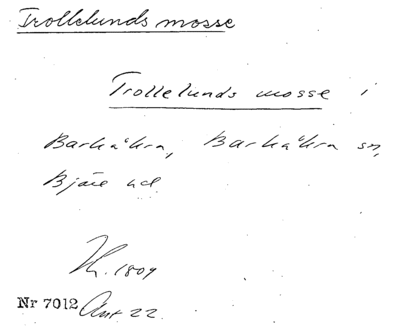 Trollelunds mosse
Trollelunds mosse i
Barkåkra, Barkåkra sn,
Bjäre hd
Th. 1809
Nr 7012 Ant 22.